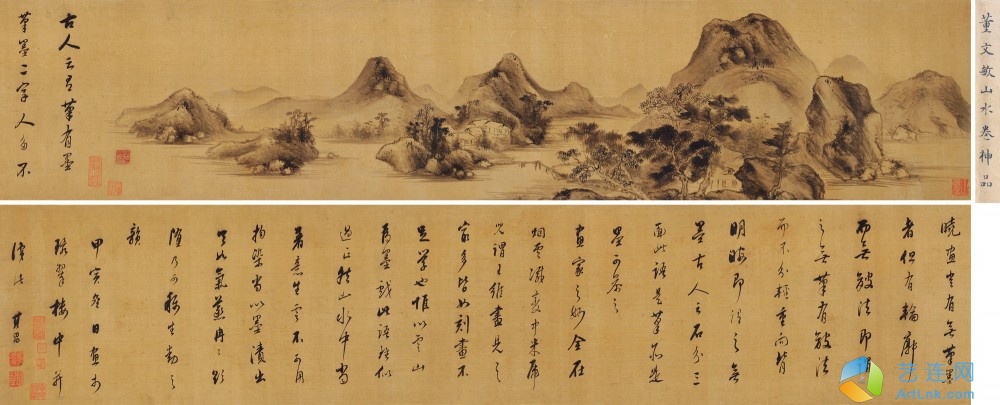 董文敏山水卷神品
古人云有筆有墨
筆墨二字人多不
曉畫豈有無筆墨
者但有輪廓
而無皴法即謂
之無筆有皴法
而不分輕重向背
明晦即謂之無
墨古人云石分三
面此語是筆亦是
墨可參之
畫家之妙全在
烟雲變滅中米虎
兒謂王維畫見之
最多皆如刻畫不
足學也惟以雲山
為墨戲此語雖似
過正然山水中當
著意生雲不可用
拘染當以墨漬出
令如氣蒸冉冉欲
墮乃可稱生動之
韻
甲寅冬日畫於
樓中并
其昌
艺连网
AdLink.com